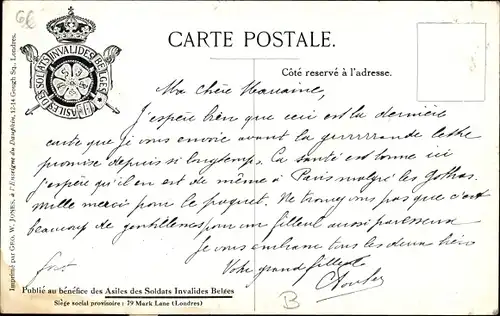 6£
CARTE POSTALE.
Côté reservé à l'adresse.
ASILES DES SOLDATS INVALIDES BELGES
Imprimé par GEO. W. JONES, à l'Enseigne du Dauphin, 12-14 Gough Sq., Londres.
Ma chère Marraine,
J'espère bien que ceci est la dernière
carte que je vous envoie avant la gurrrrrande lettre
promise depuis si longtemps. La santé est bonne ici
j'espère qu'il en est de même à Paris malgré les gothas.
Mille merci pour le paquet. Ne trouvez vous pas que c'est
beaucoup de gentillesses pour un filleul aussi paresseux
Je vous embrasse tous les deux bien
fort
Votre grand filleul
Publié au bénéfice des Asiles des Soldats Invalides Belges
Siège social provisoire : 79 Mark Lane (Londres)
B